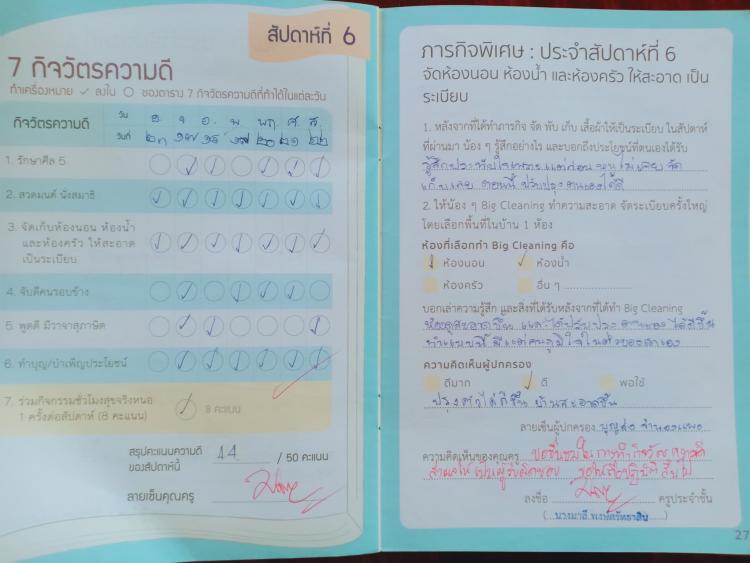 สัปดาห์ที่ 6
7 กิจวัตรความดี
ทำเครื่องหมาย ✓ ลงใน ○ ของตาราง 7 กิจวัตรความดีที่ทำได้ในแต่ละวัน
กิจวัตรความดี
วัน อ จ อ. พ พฤ ศ ส
วันที่ ๑๗ ๑๘ ๑๙ ๒๐ ๒๑ ๒๒
1. รักษาศีล 5
2. สวดมนต์ นั่งสมาธิ
3. จัดเก็บห้องนอน ห้องน้ำ
และห้องครัว ให้สะอาด
เป็นระเบียบ
4. จับดีคนรอบข้าง
5. พูดดี มีวาจาสุภาษิต
6. ทำบุญ/บำเพ็ญประโยชน์
7. ร่วมกิจกรรมชั่วโมงสุขจริงหนอ
1 ครั้งต่อสัปดาห์ (8 คะแนน)
8 คะแนน
สรุปคะแนนความดี
ของสัปดาห์นี้
44 / 50 คะแนน
ลายเซ็นคุณครู
ภารกิจพิเศษ : ประจำสัปดาห์ที่ 6
จัดห้องนอน ห้องน้ำ และห้องครัว ให้สะอาด เป็น
ระเบียบ
1. หลังจากที่ได้ทำภารกิจ จัด พับ เก็บ เสื้อผ้าให้เป็นระเบียบ ในสัปดาห์
ที่ผ่านมา น้อง ๆ รู้สึกอย่างไร และบอกถึงประโยชน์ที่ตนเองได้รับ
รู้สึก แต่ก่อนหนูไม่เคย จัด
เก็บเลย ตอนนี้ ปรับปรุงตนเองได้ดี
2. ให้น้อง ๆ Big Cleaning ทำความสะอาด จัดระเบียบครั้งใหญ่
โดยเลือกพื้นที่ในบ้าน 1 ห้อง
ห้องที่เลือกทำ Big Cleaning คือ
ห้องนอน ✓ ห้องน้ำ
ห้องครัว อื่น ๆ
บอกเล่าความรู้สึก และสิ่งที่ได้รับหลังจากที่ได้ทำ Big Cleaning
ห้องดูสะอาดขึ้น และได้ปรับปรุงตนเอง ได้ดีขึ้น
ภูมิใจในตัวของตนเอง
ความคิดเห็นผู้ปกครอง
ดีมาก ✓ ดี พอใช้
ปรุงตัวได้ดีขึ้น บ้านสะอาดขึ้น
ลายเซ็นผู้ปกครอง
ความคิดเห็นของคุณครู ขอชื่นชมในการทำกิจวัตรความดี
ลงชื่อ ครูประจำชั้น
27